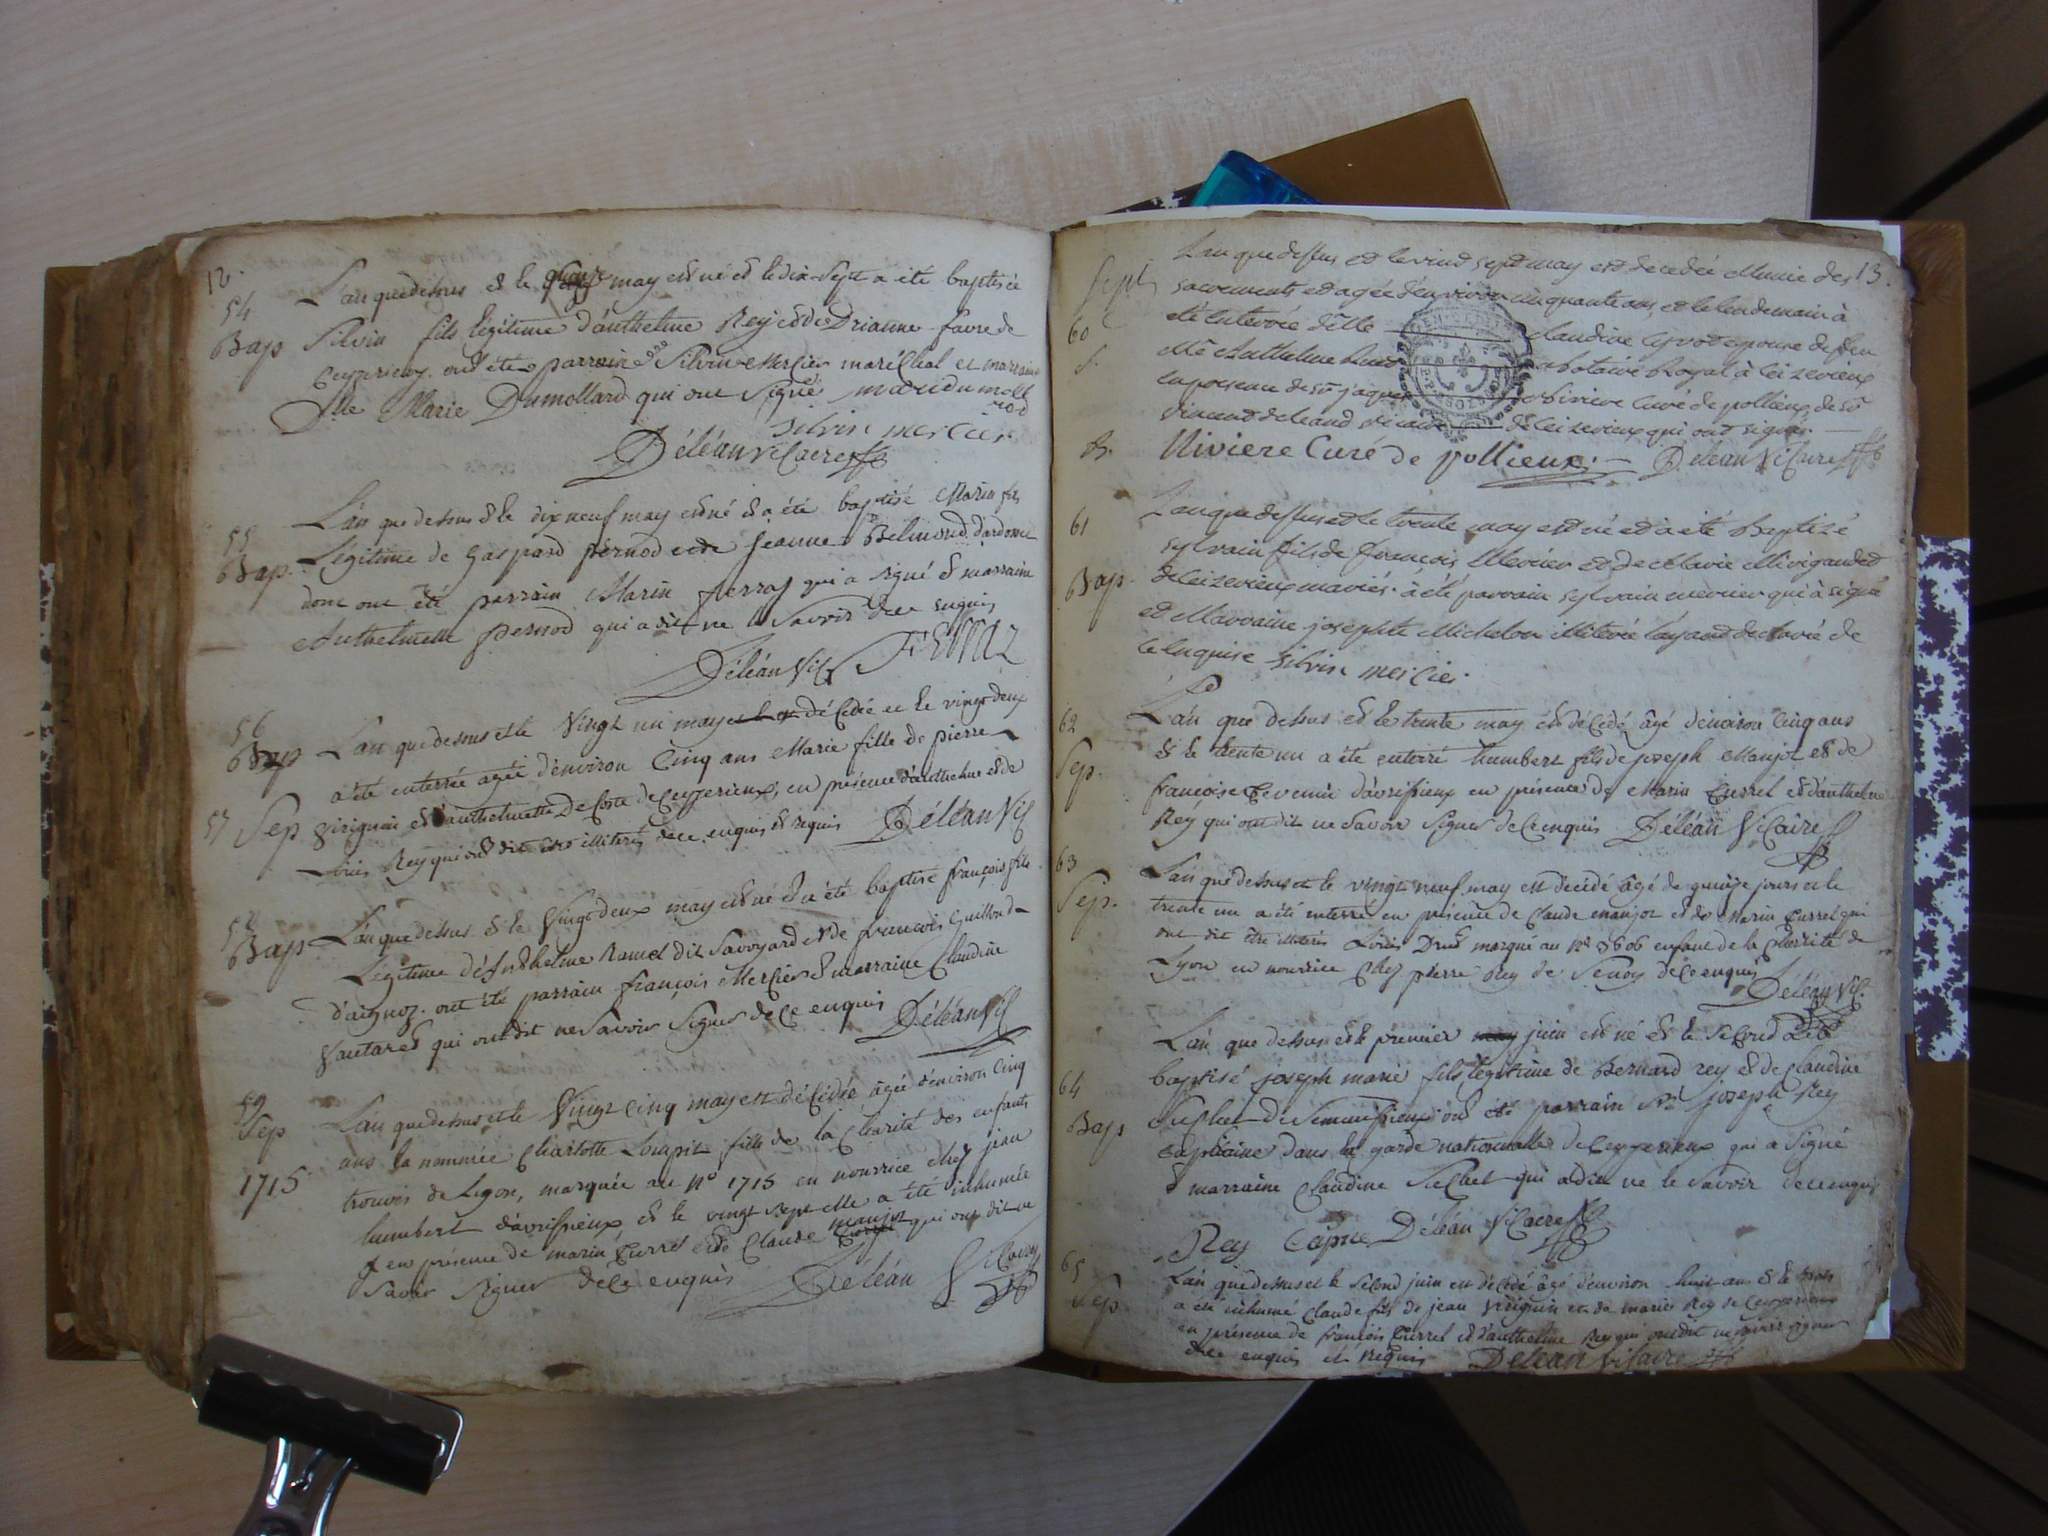 12.
54
Bap
L'an que dessus et le may est né et le dix-sept a été baptisé
Silvin fils légitime d'anthelme Rey et de Drianne favre de
Ceyzerieu. ont été parrain Silvin Mercier maréchal et marraine
Dlle Marie Dumollard qui ont signé marie dumoll
ard
silvin mercier
Déléan vicaire
55
Bap.
L'an que dessus & le dix neuf may est né et a été baptisé Marin fils
Légitime de Gaspard pernod et de Jeanne Belmond d'ardosset
dont ont été parrain Marin ferraz qui a signé & marraine
Anthelmette pernod qui a dit ne savoir de ce enquis
Déléan Vic
56
Bap
57
Sep
L'an que dessus et le vingt un may est décédée et le vingt deux
a été enterrée agée d'environ Cinq ans Marie fille de pierre
et d'anthelmette De Coste de Ceyzerieux, en présence d'anthelme et de
Louis Rey qui ont dit être illiterés de ce enquis & requis Déléan Vic
58
Bap
L'an que dessus & le Vingt deux may est né et a été baptisé françois fils
Légitime d'Anthelme Ramel dit Savoyard et de françoise Guillond
d'aignoz. ont été parrain françois Mercier & marraine Claudine
Vautaret qui ont dit ne savoir signer de ce enquis Déléan Vic
59
Sep
1715
L'an que dessus et le Vingt Cinq may est décédée âgée d'environ Cinq
ans la nommée Charlotte Loupit fille de la Charité des enfants
trouvés de Lyon, marquée au n° 1715 en nourrice chez jean
humbert d'avrissieux, & le vingt sept elle a été inhumée
en présence de marin Currel et de Claude manjot qui ont dit ne
savoir signer de ce enquis Déléan
13.
Sept
60
S.
L'an que dessus et le vint sept may est decedée Munie des
sacrements et agée d'environ cinquante ans, et le lendemain à
été enterrée dlle Claudine épouse de feu
Me Anthelme Notaire Royal à Ceizerieux
en présence de Sr jaques Riviere Curé de pollieux, de Sr
Vincent deleand vicaire de Ceizerieux qui ont signés.
Riviere Curé de pollieux. Déléan Vicaire
61
Bap.
L'an que dessus et le trente may est né et a été Baptizé
sylvain fils de françois Mercier et de Marie
de Ceizerieux mariés. à été parrain sylvain mercier qui à signé
et Marraine josephte Michelon illiterée l'ayant declaré de
ce enquise Silvin mercier.
62
Sep.
L'an que dessus et le trente may est décédé âgé d'environ Cinq ans
& le trente un a été enterré humbert fils de joseph Manjot et de
françoise Cevenin d'avrissieux en présence de Marin Currel et d'anthelme
Rey qui ont dit ne savoir signer de ce enquis Déléan Vicaire
63
Sep.
L'an que dessus et le vingt neuf may est décédé âgé de quinze jours et le
trente un a été enterré en présence de Claude manjot et de Marin Currel qui
ont dit être illiterés Louis Drut marqué au n° 3606 enfant de la Charité de
Lyon en nourrice chez pierre Rey de Senoy de ce enquis
Déléan Vic.
64
Bap
L'an que dessus et le premier may juin est né et le second a été
baptisé joseph marie fils légitime de Bernard rey et de Claudine
Suchet De Semmessieux ont été parrain Sr joseph Rey
Capitaine dans la garde nationnalle de Ceyzerieux qui a signé
& marraine Claudine Suchet qui a dit ne le savoir de ce enquis
Rey Capne Déléan Vicaire
65
Sep
L'an que dessus et le second juin est décédé âgé d'environ huit ans & le trois
a été inhumé Claude fils de jean et de marie Rey de Ceyzerieux
en présence de françois Currel et d'anthelme Rey qui ont dit ne savoir signer
de ce enquis et requis Déléan vicaire